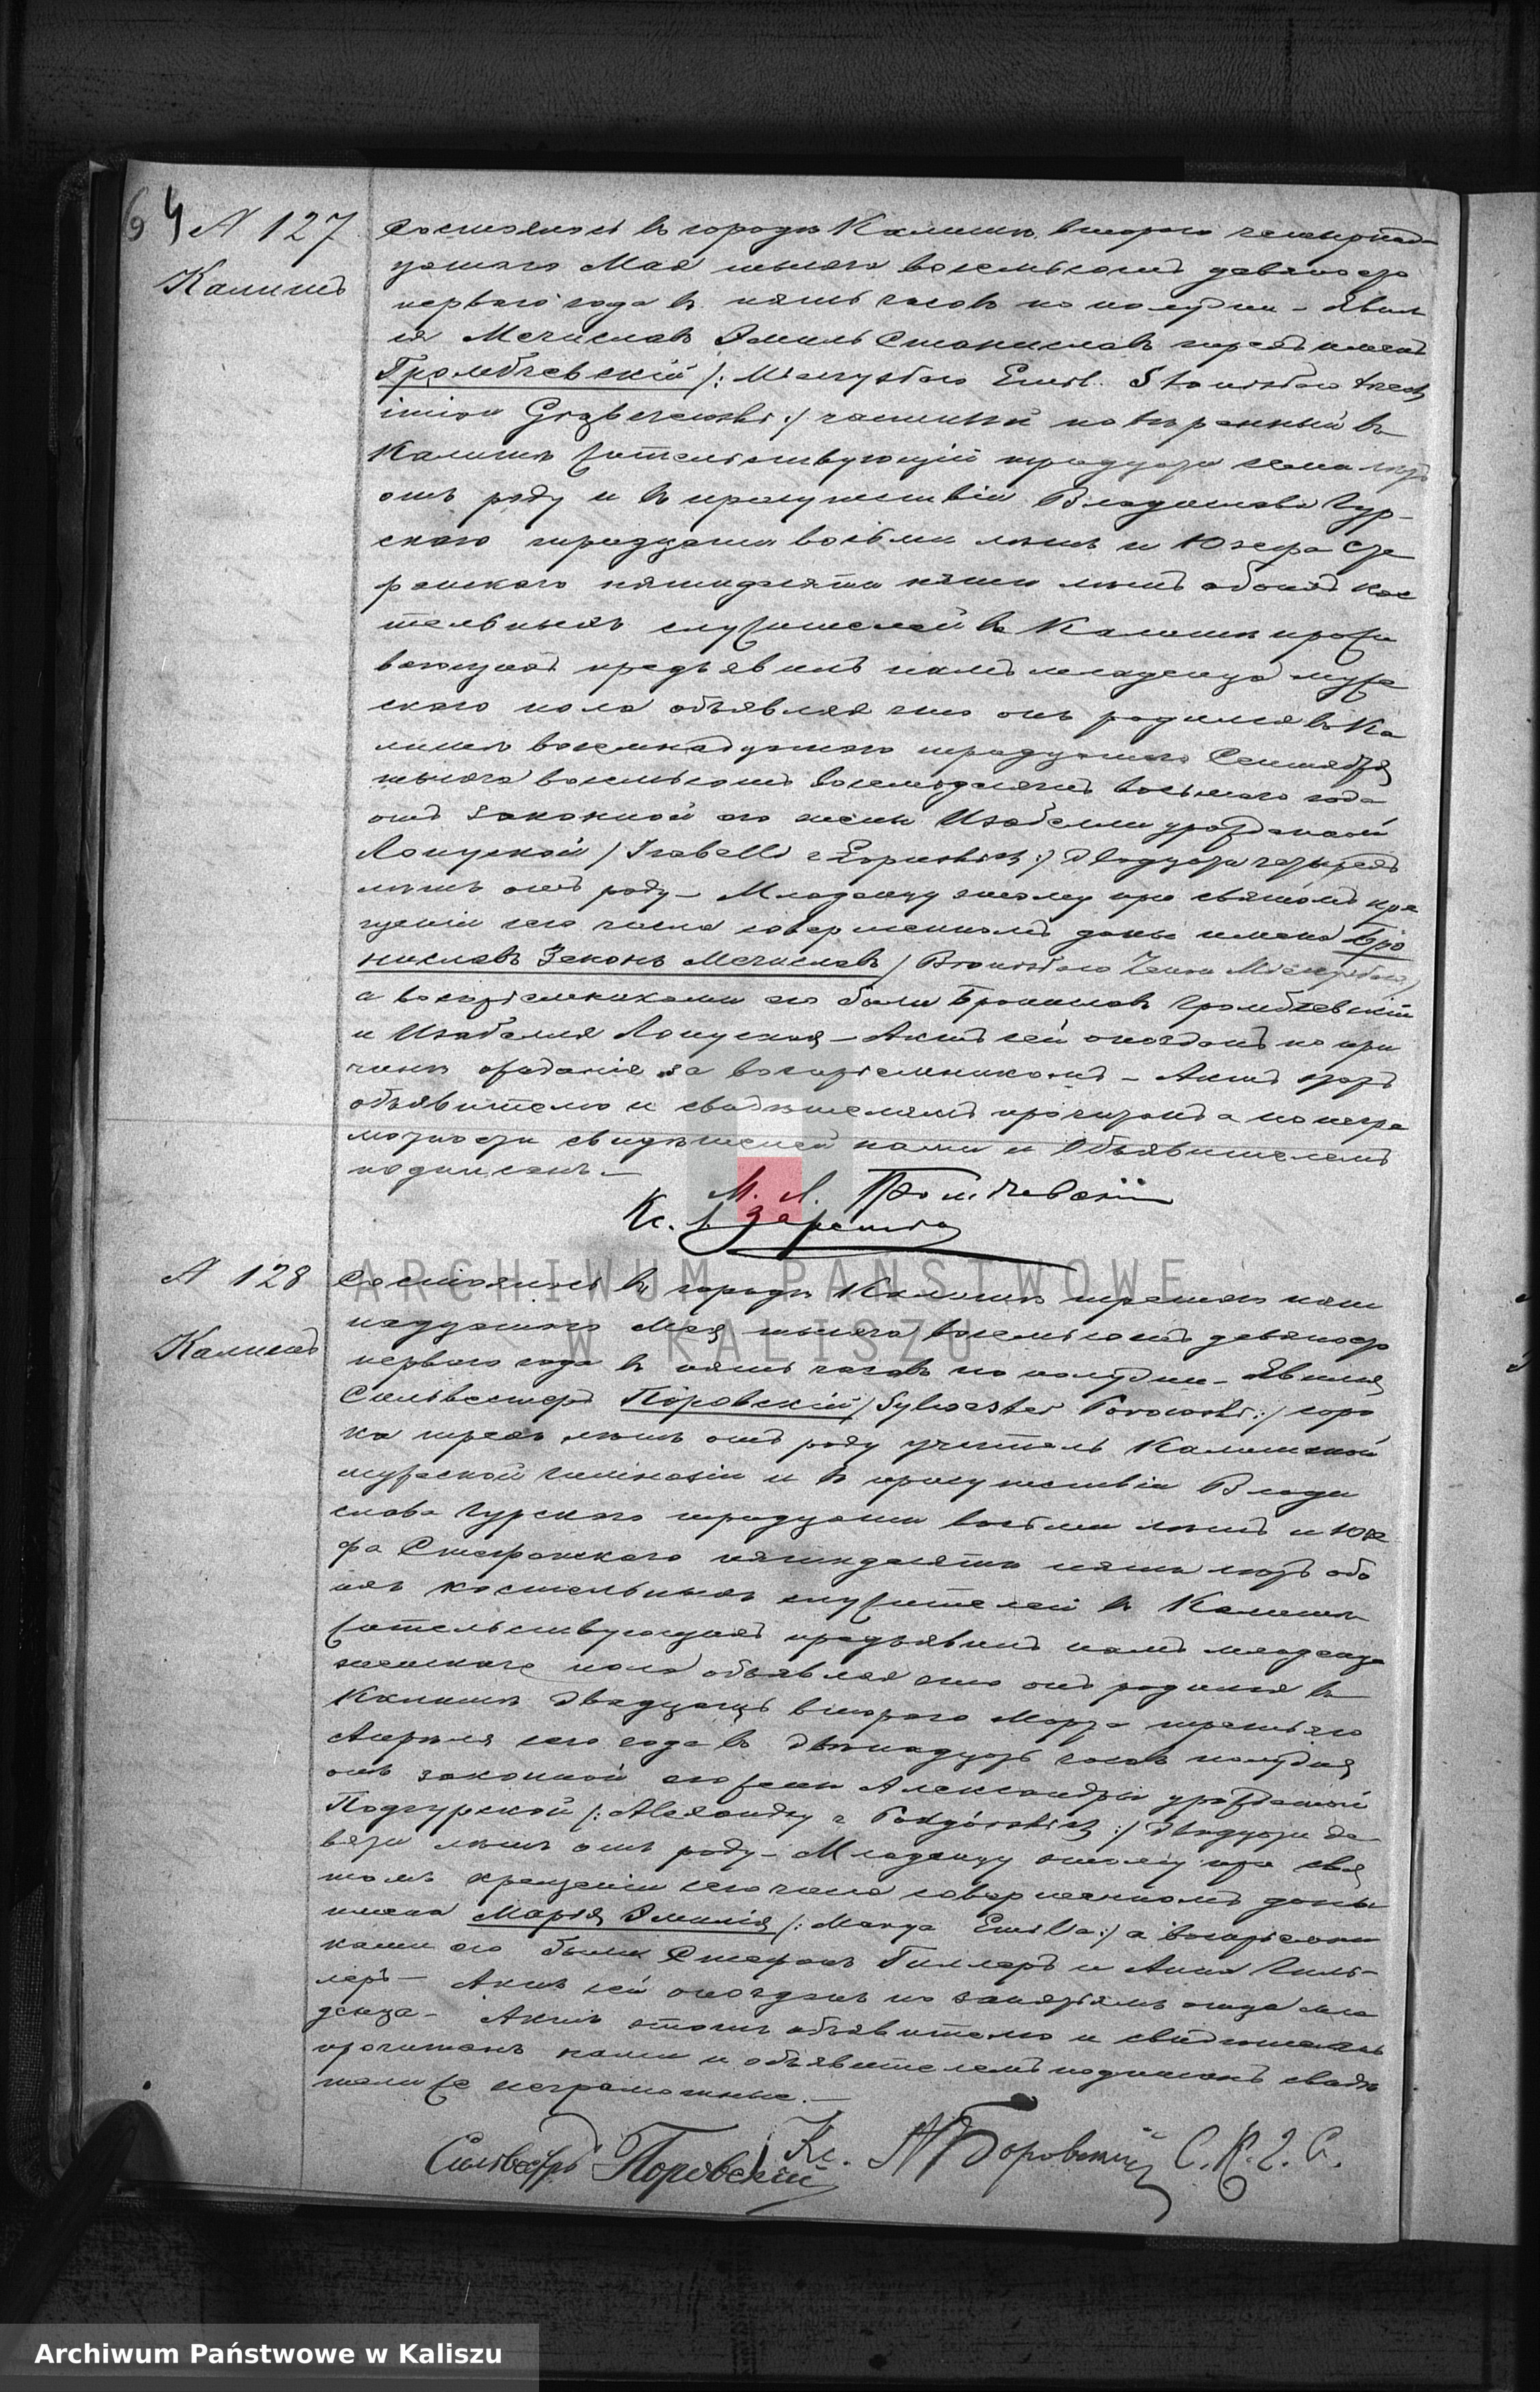 64 N 127
Калишъ
Состоялось въ городѣ Калишѣ второго четырнад-
цатаго Мая тысяча восемьсотъ девяносто
перваго года въ пять часовъ по полудни – Явил
ся Мечиславъ Эмиль Станиславъ трехъ именъ
Громбчевскій /: Mieczysław Emil Stanisław trzech
imion Grąbczewski :/ частный повѣренный въ
Калишѣ жительствующій тридцати лѣтъ
отъ роду и въ присутствіи Владислава Гур-
скаго тридцати восьми лѣтъ и Юзефа Сте
фанскаго пятидесяти пяти лѣтъ обоихъ кос
тельныхъ служителей въ Калишѣ прожи
вающихъ предъявилъ намъ младенца муже
скаго пола объявляя что онъ родился въ Ка
лишѣ восемнадцатаго тридцатаго Сентября
тысяча восемьсотъ восемьдесятъ восьмаго года
отъ законной его жены Изабеллы урожденной
Лопуской /: Izabelli z Łopuskich :/ двадцати четырехъ
лѣтъ отъ роду – Младенцу этому при святомъ кре
щеніи сего числа совершенномъ даны имена Бро
ниславъ Зенонъ Мечиславъ /: Bronisław Zenon Mieczysław :/
а воспріемниками его были Брониславъ Громбчевскій
и Изабелла Лопуская – Актъ сей опозданъ по при
чинѣ ожиданія за воспріемникомъ – Актъ этотъ
объявителю и свидѣтелямъ прочитанъ а по негра
мотности свидѣтелей нами и Объявителемъ
подписанъ. –
М. Громбчевскій
Кс.
N 128
Калишъ
Состоялось въ городѣ Калишѣ третьяго пят
надцатаго Мая тысяча восемьсотъ девяносто
перваго года въ пять часовъ по полудни – Явился
Сильвестеръ Поровскій /: Sylwester Porowski :/ соро
ка трехъ лѣтъ отъ роду учитель Калишской
мужеской гимназіи и въ присутствіи Влади
слава Гурскаго тридцати восьми лѣтъ и Юзе
фа Стефанскаго пятидесяти пяти лѣтъ обо
ихъ костельныхъ служителей въ Калишѣ
жительствующихъ предъявилъ намъ младенца
женскаго пола объявляя что оно родился въ
Калишѣ двадцать второго Марта третьяго
Апрѣля сего года въ двѣнадцать часовъ полудня
отъ законной его жены Александры урожденной
Подгурской /: Alexandry z Podgórskich :/ двадцати де
вяти лѣтъ отъ роду – Младенцу этому при свя
томъ крещеніи сего числа совершенномъ даны
имена Марія Эмилія /: Marya Emilia :/ а воспріемни
ками его были Стефанъ Гиллеръ и Анна Гил-
леръ – Актъ сей опозданъ по занятіямъ отца мла
денца – Актъ этотъ объявителю и свидѣтелямъ
прочитанъ нами и объявителемъ подписанъ свидѣ
тели же неграмотные. –
Сильвестръ Поровскій Кс. А Боровскій С.К.Г.С.
ARCHIWUM PAŃSTWOWE
W KALISZU
Archiwum Państwowe w Kaliszu